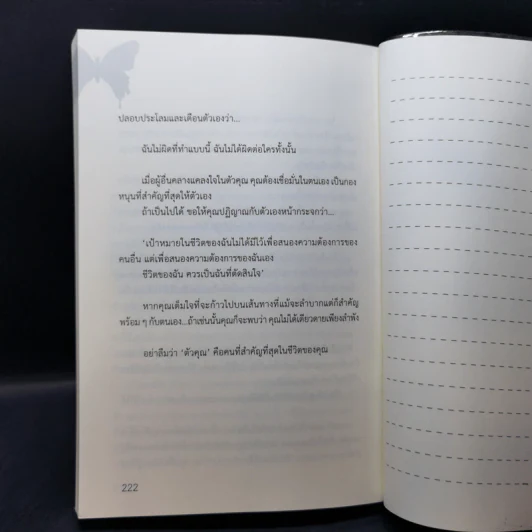 ปลอบประโลมและเตือนตัวเองว่า...
ฉันไม่ผิดที่ทำแบบนี้ ฉันไม่ได้ผิดต่อใครทั้งนั้น
เมื่อผู้อื่นคลางแคลงใจในตัวคุณ คุณต้องเชื่อมั่นในตนเอง เป็นกอง
หนุนที่สำคัญที่สุดให้ตัวเอง
ถ้าเป็นไปได้ ขอให้คุณปฏิญาณกับตัวเองหน้ากระจกว่า...
‘เป้าหมายในชีวิตของฉันไม่ได้มีไว้เพื่อสนองความต้องการของ
คนอื่น แต่เพื่อสนองความต้องการของฉันเอง
ชีวิตของฉัน ควรเป็นฉันที่ตัดสินใจ’
หากคุณเต็มใจที่จะก้าวไปบนเส้นทางที่แม้จะลำบากแต่ก็สำคัญ
พร้อม ๆ กับตนเอง...ถ้าเช่นนั้นคุณก็จะพบว่า คุณไม่ได้เดียวดายเพียงลำพัง
อย่าลืมว่า ‘ตัวคุณ’ คือคนที่สำคัญที่สุดในชีวิตของคุณ
222